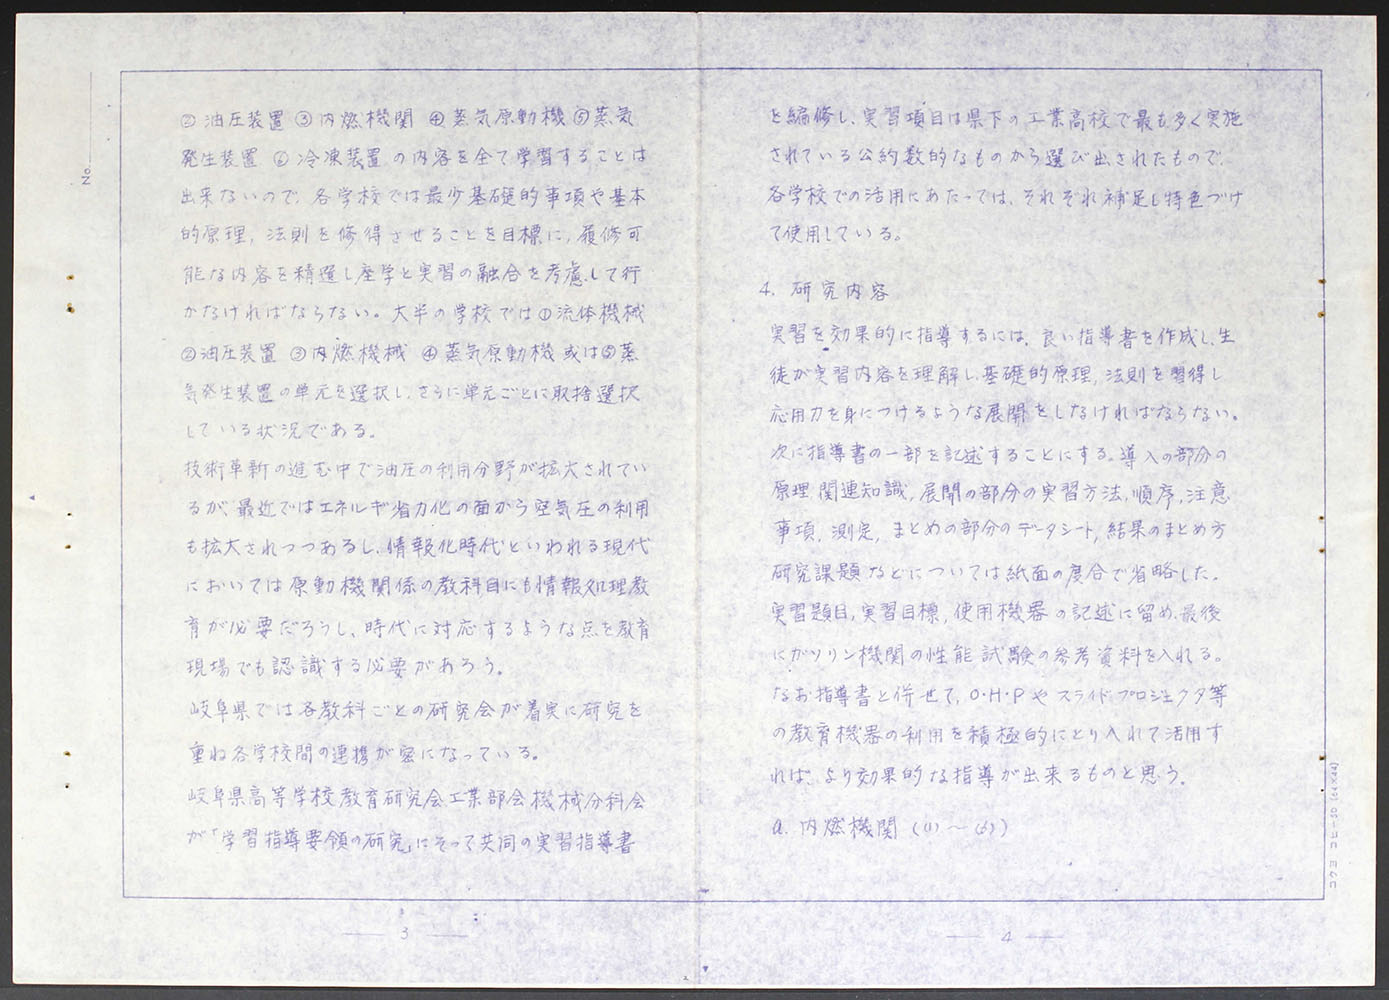 No.
②油圧装置 ③内燃機関 ④蒸気原動機 ⑤蒸気
発生装置 ⑥冷凍装置 の内容を全て学習することは
出来ないので、各学校では最少基礎的事項や基本
的原理, 法則を修得させることを目標に, 履修可
能な内容を精選し座学と実習の融合を考慮して行
かなければならない。大半の学校では①流体機械
②油圧装置 ③内燃機械 ④蒸気原動機或は⑤蒸
気発生装置の単元を選択し、さらに単元ごとに取捨選択
している状況である。
技術革新の進む中で油圧の利用分野が拡大されてい
るが、最近ではエネルギ省力化の面から空気圧の利用
も拡大されつつあるし、情報化時代といわれる現代
においては原動機関係の教科目にも情報処理教
育が必要だろうし、時代に対応するような点を教育
現場でも認識する必要があろう。
岐阜県では各教科ごとの研究会が着実に研究を
重ね各学校間の連携が密になっている。
岐阜県高等学校教育研究会工業部会機械分科会
が「学習指導要領の研究」にそって共同の実習指導書
3
を編修し、実習項目は県下の工業高校で最も多く実施
されている公約数的なものから選び出されたもので、
各学校での活用にあたっては、それぞれ補足し特色づけ
て使用している。
4. 研究内容
実習を効果的に指導するには、良い指導書を作成し、生
徒が実習内容を理解し、基礎的原理, 法則を習得し
応用力を身につけるような展開をしなければならない。
次に指導書の一部を記述することにする。導入の部分の
原理 関連知識, 展開の部分の実習方法, 順序, 注意
事項, 測定, まとめの部分のデータシート, 結果のまとめ方
研究課題などについては紙面の度合で省略した。
実習題目, 実習目標, 使用機器の記述に留め、最後
にガソリン機関の性能試験の参考資料を入れる。
なお指導書と併せて, O・H・Pやスライドプロジェクタ等
の教育機器の利用を積極的にとり入れて活用す
れば、より効果的な指導が出来るものと思う。
a. 内燃機関 ((1)〜(5))
4
コクヨ コヒー50